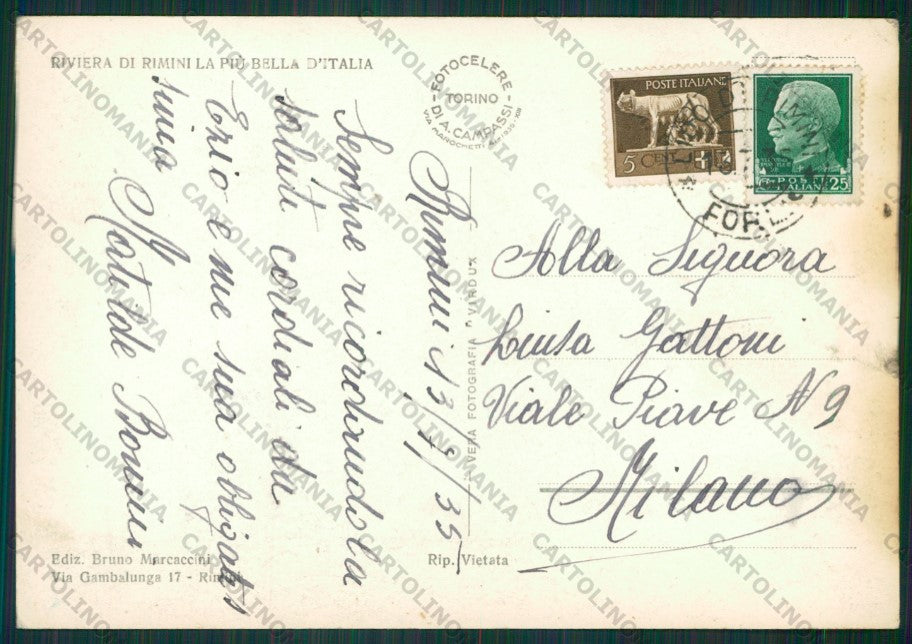 RIVIERA DI RIMINI LA PIÙ BELLA D'ITALIA
FOTOCELERE
TORINO
DI A. CAMPASSI
POSTE ITALIANE
5 CENT.
POSTE ITALIANE 25
FORLÌ
Rimini 13/7/35
Sempre ricordandola
saluti cordiali da
Ezio e me sua obbligat
sima
Matilde Bonini
VERA FOTOGRAFIA
Alla Signora
Luisa Gattoni
Viale Piave N 9
Milano
Ediz. Bruno Marcaccini
Via Gambalunga 17 - Rimini
Rip. Vietata
CARTOLINOMANIA